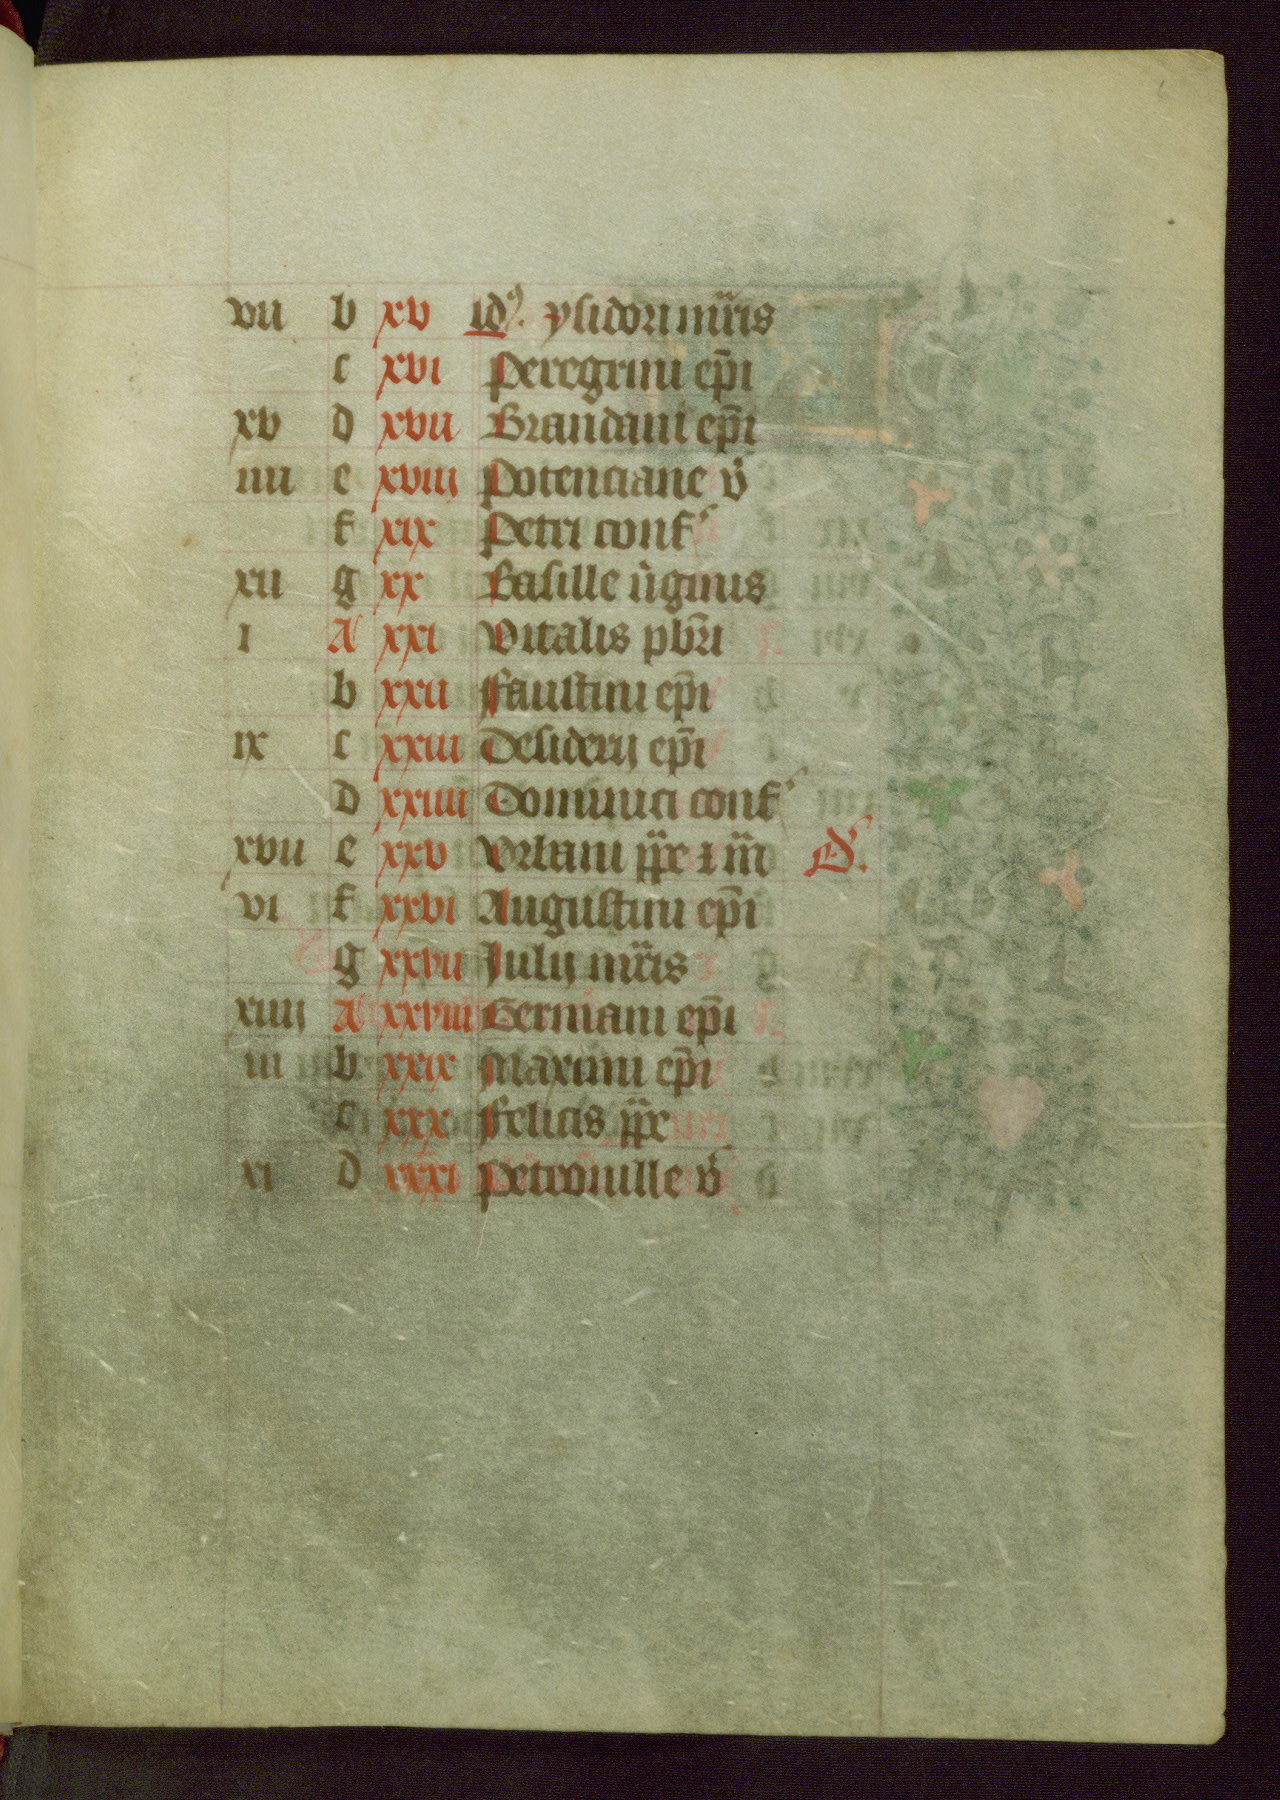 6
vii b xv id᷒. ysidori mr̄is
c xvi Peregrini ep̄i
xv d xvii Brandani ep̄i
iiii e xviii Potenciane v̄
f xix Petri conf
xii g xx Basille v̄ginis
i A xxi Vitalis pbr̄i
b xxii Faustini ep̄i
ix c xxiii Desiderij ep̄i
d xxiiii Dominici conf
xvii e xxv Vrbani pp̄e ⁊ m̄r
vi f xxvi Augustini ep̄i
g xxvii Julij mr̄is
xiiij A xxviii Germani ep̄i
iii b xxix Maximi ep̄i
c xxx Felicis pp̄e
xi d xxxi Petronille v̄